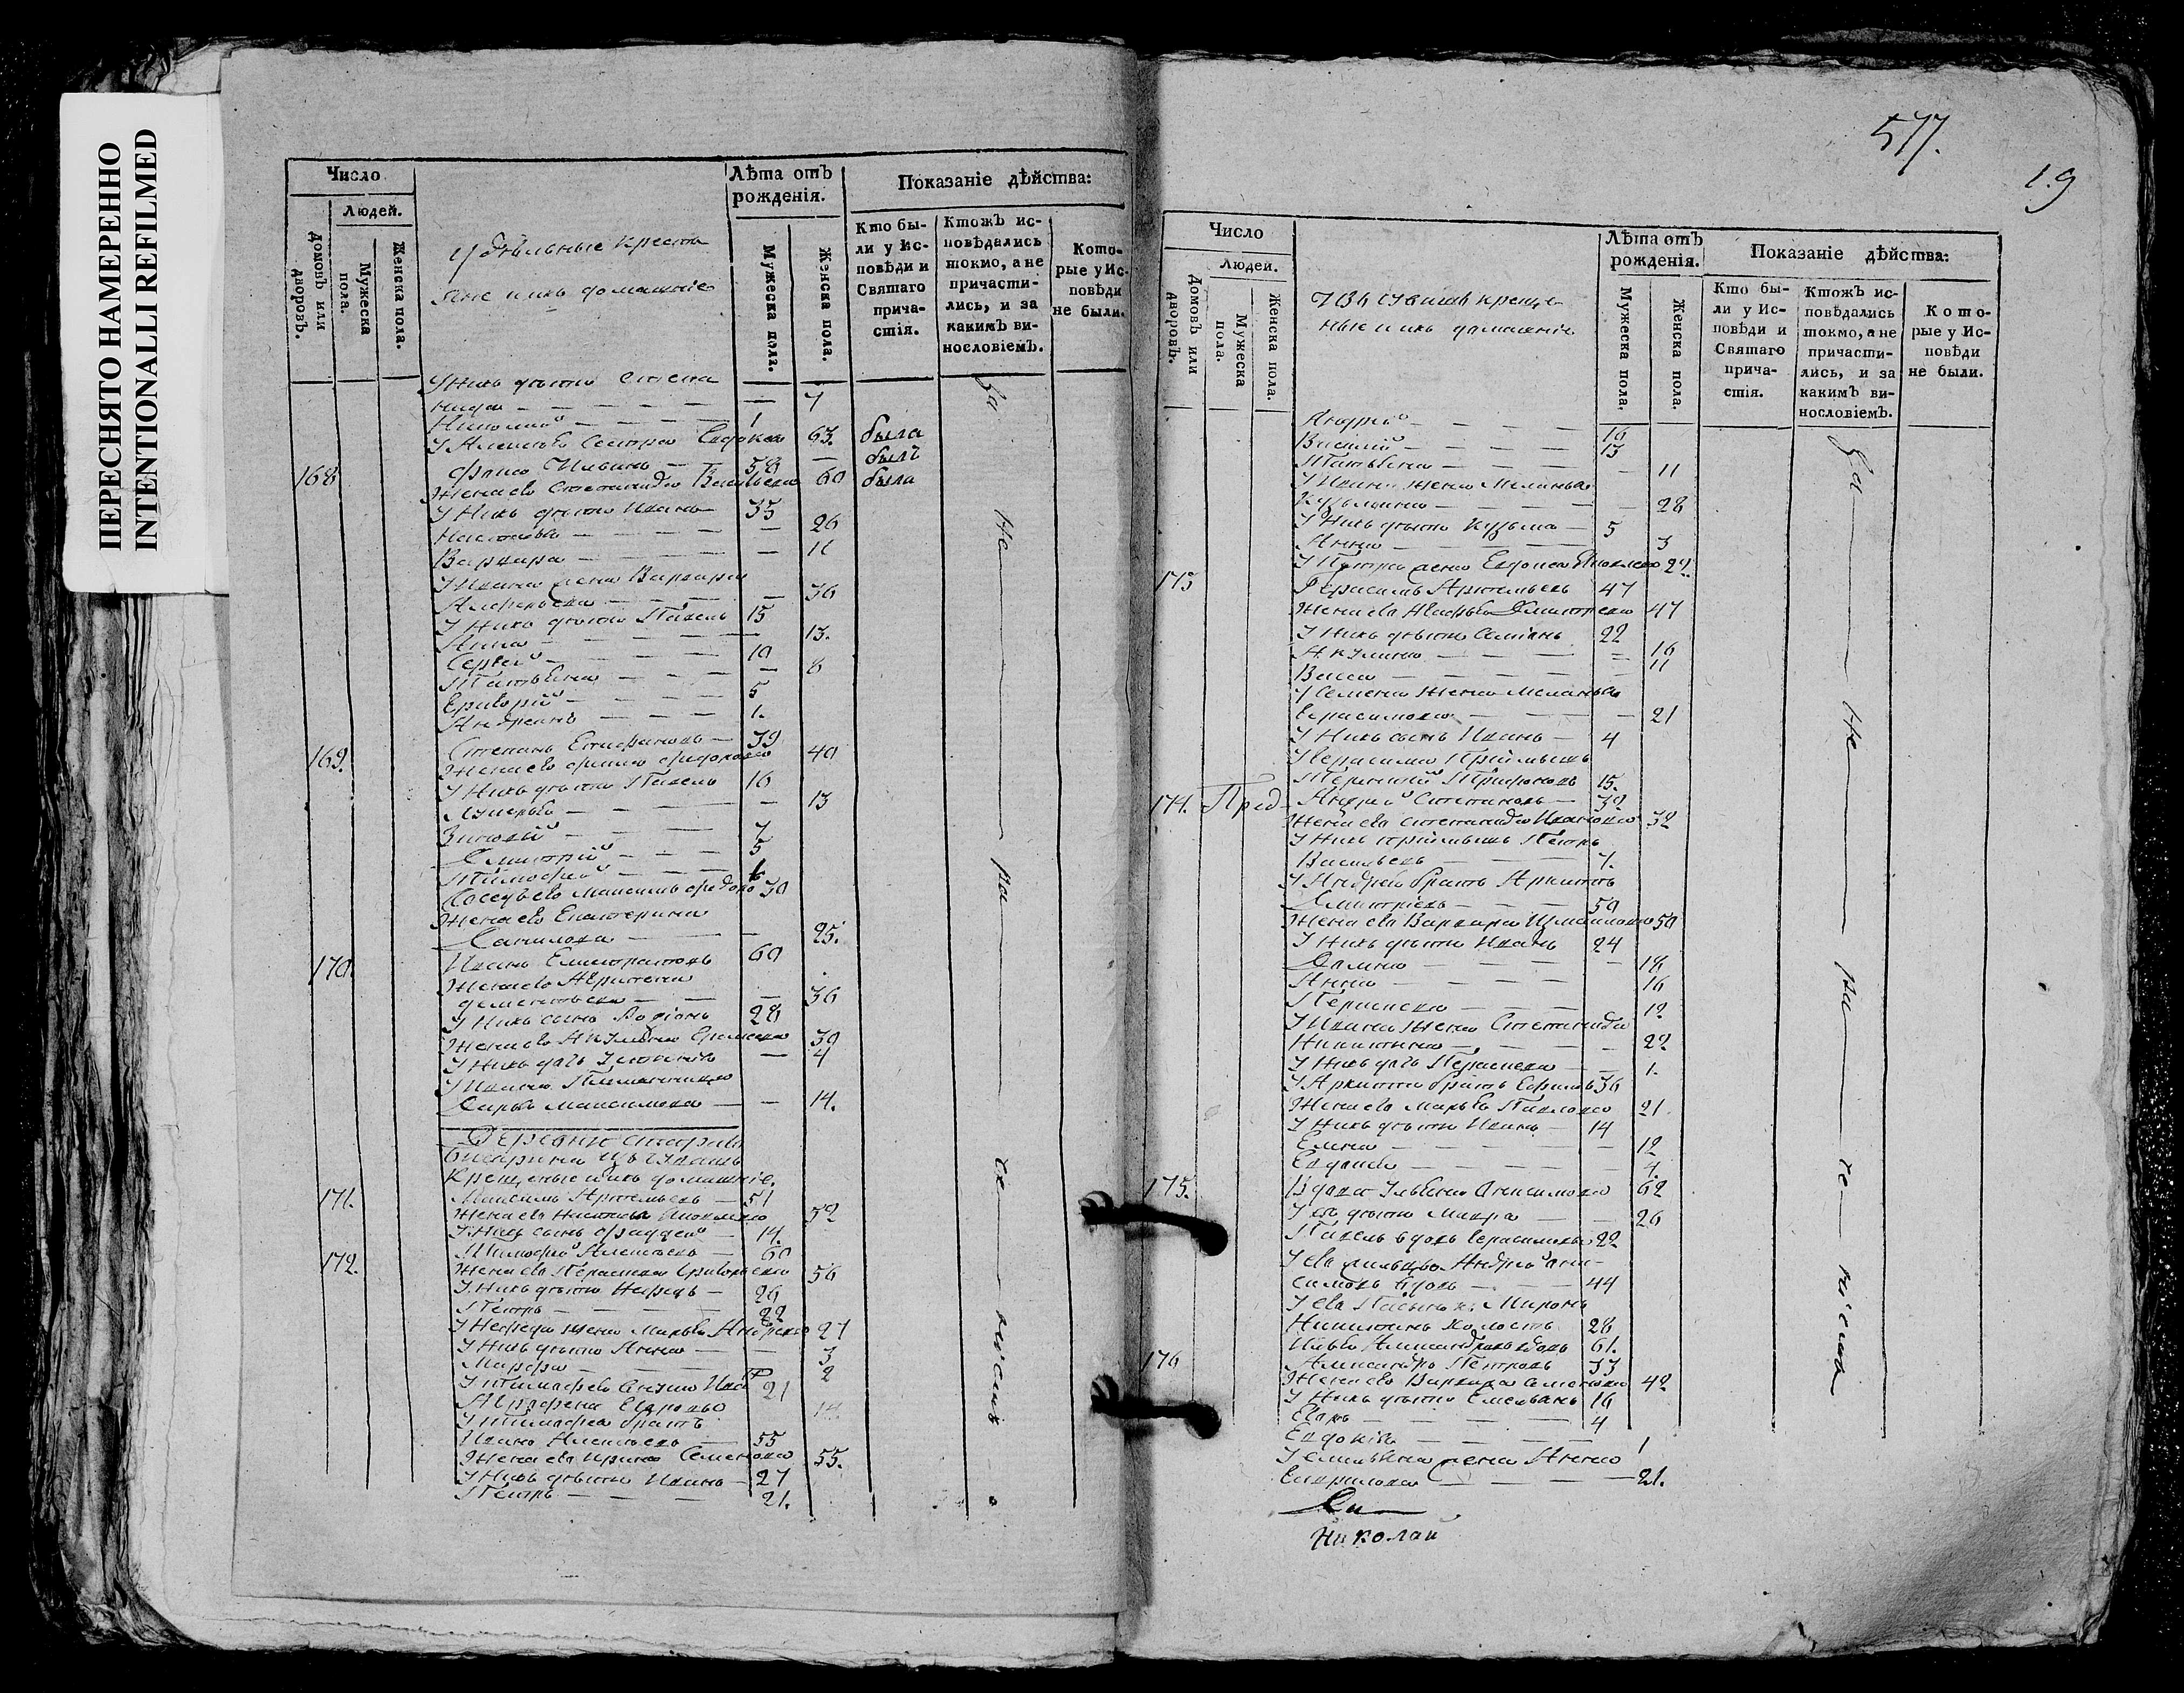 ПЕРЕСНЯТО НАМЕРЕННО
INTENTIONALLI REFILMED
Число
Людей.
Домовъ или дворовъ.
Мужеска пола.
Женска пола.
Удѣльные крестья
яне и ихъ домашніе
Лѣта отъ рожденія.
Мужеска пола.
Женска пола.
Показаніе дѣйства:
Кто бы-
ли у Ис-
повѣди и
Святаго
прича-
стія.
Ктожъ ис-
повѣдались
токмо, а не
причасти-
лись, и за
какимъ ви-
нословіемъ.
Кото-
рые у Ис-
повѣди
не были.
У нихъ дѣти Степа
нида — 7
Николай — 1
У Алексѣя сестра Евдокея 63. была
168 Ильинъ — 58 — былъ
Жена ево Степанида Васильева 60 была
У нихъ дѣти Иванъ 35
Настасья — 26
Варвара — 11
У Ивана жена Варвара
Алферьева — 36
У нихъ дѣти Павелъ 15
Анна — 13.
Сергей — 10
Татьяна — 8
Григорій — 5
Андреянъ — 1.
169. Степанъ Епифановъ — 39
Жена ево Федорова 40
У нихъ дѣти Павелъ 16
Лукерья — 13
7
Дмитрій — 5
Тимофей
Максимъ 30
Жена ево Екатерина
Данилова — 25.
170. Иванъ 60
Жена ево
Дементьева — 36
У нихъ сынъ Родіонъ 28
Жена ево Акулина 30
У нихъ дочь Устинья — 4
У Ивана Племянница
Дарья Максимова — 14.
Деревни Старой
крещеные и ихъ домашніе.
171. Максимъ Артемьевъ — 51
Жена ево Настасья Яковлева 52
У нихъ сынъ Фаддей — 14.
172. Тимофей Алексѣевъ — 60
Жена ево Параскева Григорьева 56
У нихъ дѣти Нефедъ — 26
Петръ — 22
У Нефеда жена Марья Андреева 27
У нихъ дѣти Анна — 3
Марфа — 2
У Тимофея 21
Аграфена 14
У Тимофея братъ
Иванъ Алексѣевъ — 55
Жена ево Ирина Семенова 55.
У нихъ дѣти Иванъ — 27
Петръ — 21.
За — не — на — че — ніемъ
577.
19
Число
Людей.
Домовъ или дворовъ.
Мужеска пола.
Женска пола.
Изъ Чувашъ креще
ные и ихъ домашніе
Лѣта отъ рожденія.
Мужеска пола.
Женска пола.
Показаніе дѣйства:
Кто бы-
ли у Ис-
повѣди и
Святаго
прича-
стія.
Ктожъ ис-
повѣдались
токмо, а не
причасти-
лись, и за
какимъ ви-
нословіемъ.
Кото-
рые у Ис-
повѣди
не были.
Андрей — 16
Василій — 13
Татьяна — 11
У Ивана жена Маланья
Кузьмина — 28
У нихъ дѣти Кузьма — 5
Анна — 3
У Петра жена Евдокея Яковлева 22.
173 Герасимъ Артемьевъ 47
Жена ева Дмитрева 47
У нихъ дѣти Семіонъ 22
Акулина — 16
Васса — 11
У Семена жена Меланья
Герасимова — 21
У нихъ сынъ Иванъ — 4
У Герасима Пріймышъ
Терентій Трифоновъ 15.
174. Пред- Андрей Степановъ — 32
Жена ева Степанида Иванова 32
У нихъ пріймышъ Петръ
Васильевъ — 7.
У Андрея братъ Архиппъ
Дмитріевъ — 50
Жена ева Варвара 50
У нихъ дѣти Иванъ 24
18
Анна — 16
Параскева — 12
У Ивана жена Степанида
Никитина — 22
У нихъ дочь Параскева — 1.
У Архиппа братъ Ефимъ 36
Жена ево Марья Павлова 21
У нихъ дѣти Иванъ — 14
Елена — 12
Евдокея — 7.
175. Вдова Ульяна Анисимова 62
У ея дѣти Мавра — 26
Павелъ вдовъ Герасимовъ 22
У ева Андрей Они-
симовъ вдовъ — 44
У ева Пасынокъ Миронъ
Никитинъ холостъ 28
Илья Александровъ вдовъ 61.
176 Александръ Петровъ 33
Жена ево Варвара Семенова 42
У нихъ дѣти Емельянъ 16
4
Евдокія — 1
У Емельяна жена Анна
Гаврилова — 21.
За — не — на — че — ніемъ
Николай